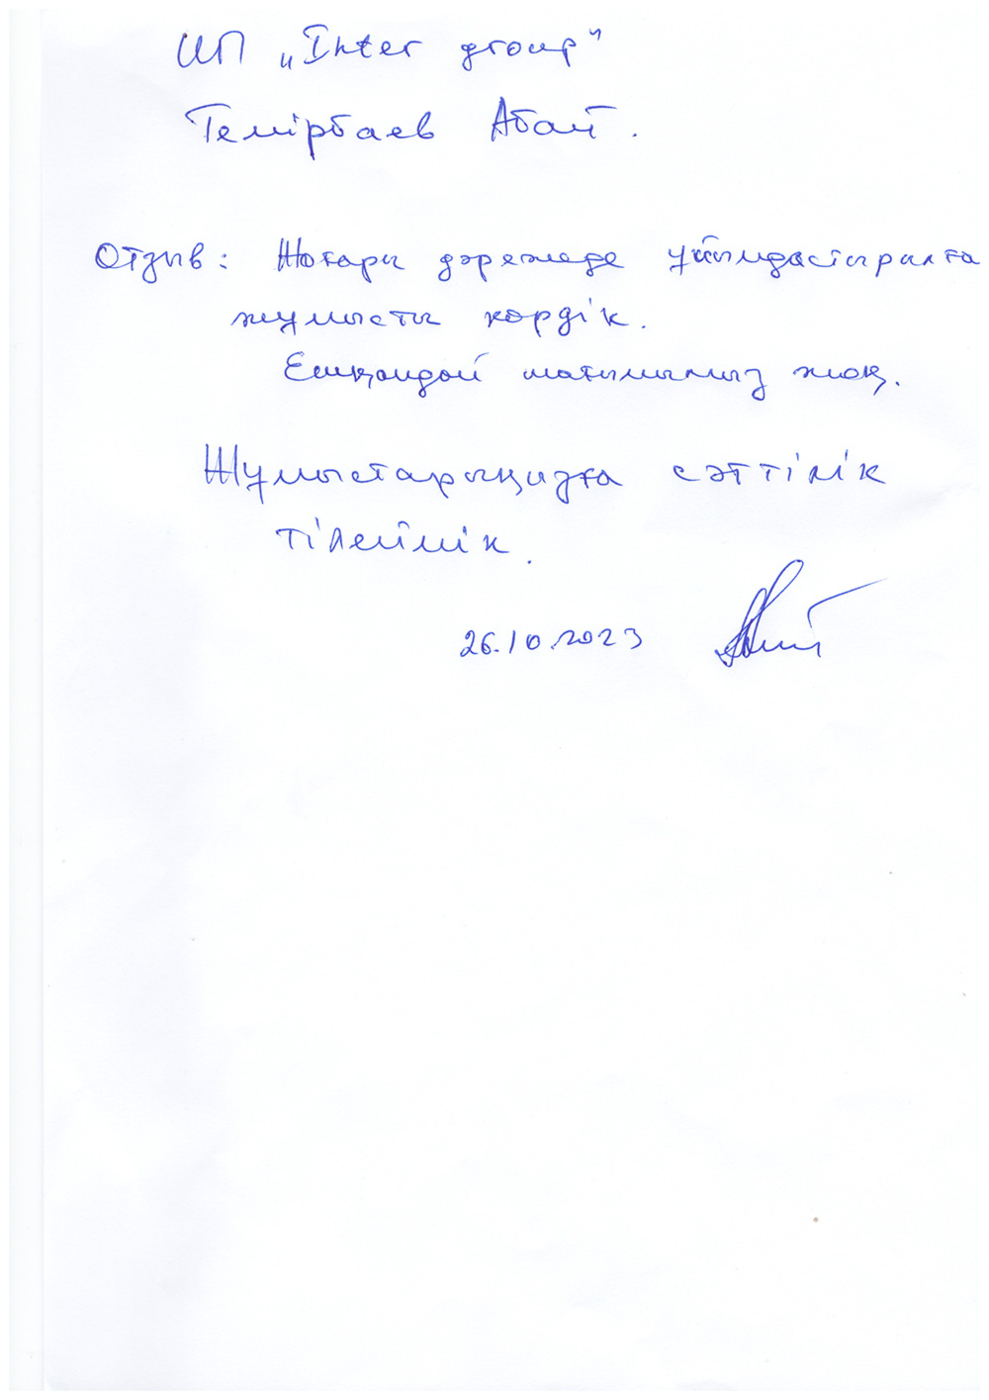 ИП „Inter group"
Темірбаев Абай.
Отзыв: Жоғары дәрежеде ұйымдастырылға
жұмысты көрдік.
Ешқандай шағымымыз жоқ.
Жұмыстарыңызға сәттілік
тілейміз.
26.10.2023